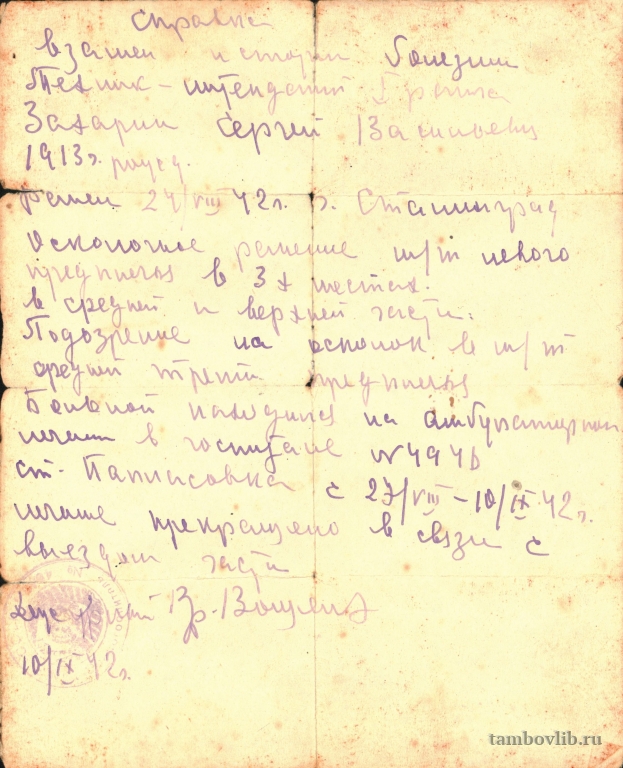 Справка
взамен истории болезни
Техник-интендант I ранга
Захарин Сергей Васильевич
1913 г. рожд.
ранен 27/VIII 42 г. г. Сталинград
Осколочное ранение м/т левого
предплечья в 3х местах.
в средней и верхней части.
Подозрение на осколок в м/т
средней трети предплечья
Больной находился на амбулаторном
лечении в госпитале № 4946
ст. Паласовка с 27/VIII – 10/IX 42 г.
лечение прекращено в связи с
выездом части
Вр.
10/IX 42 г.
tambovlib.ru